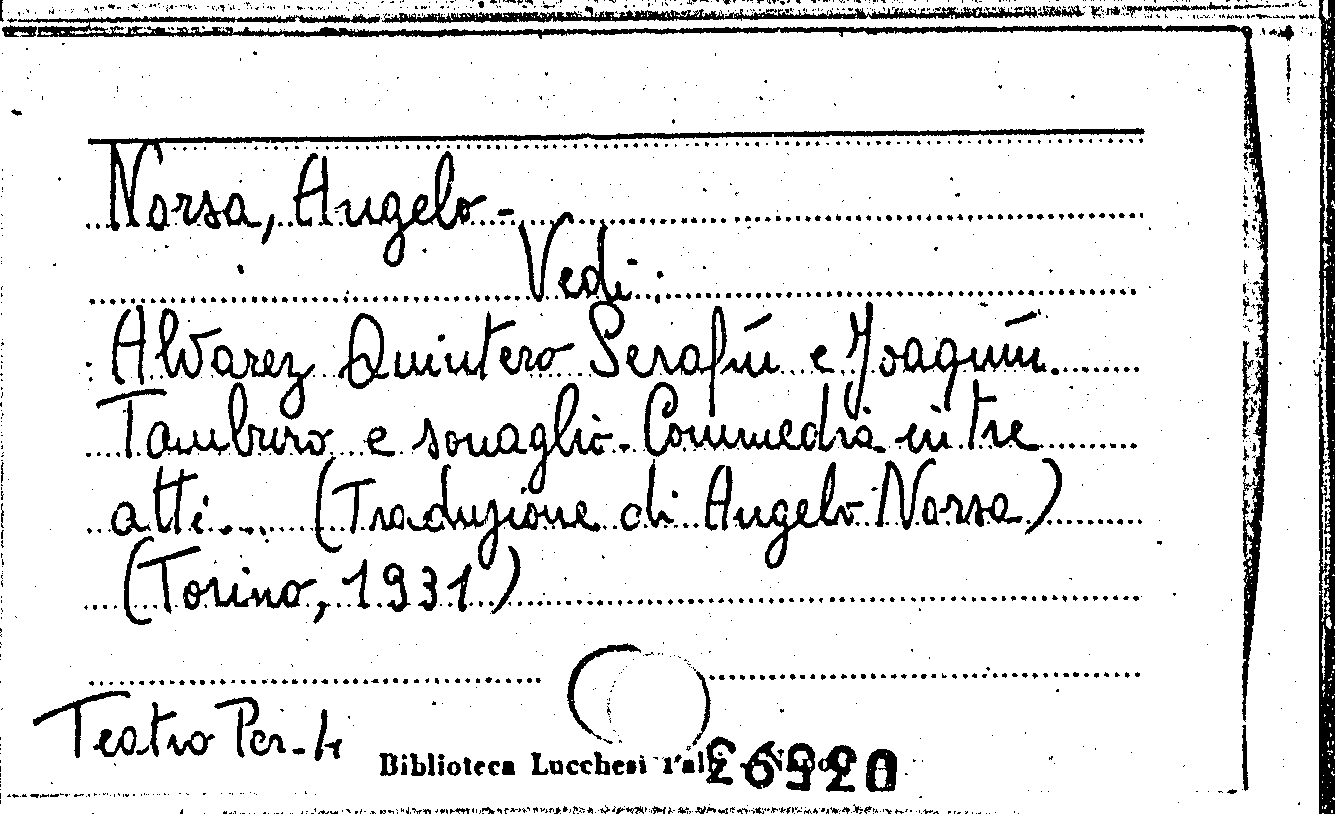 Norsa, Angelo -
Vedi:
Alvarez Quintero Serafín e Joaquín.
Tamburo e sonaglio - Commedia in tre
atti... (Traduzione di Angelo Norsa)
(Torino, 1931)
Teatro Per. 4
Biblioteca Lucchesi Palli